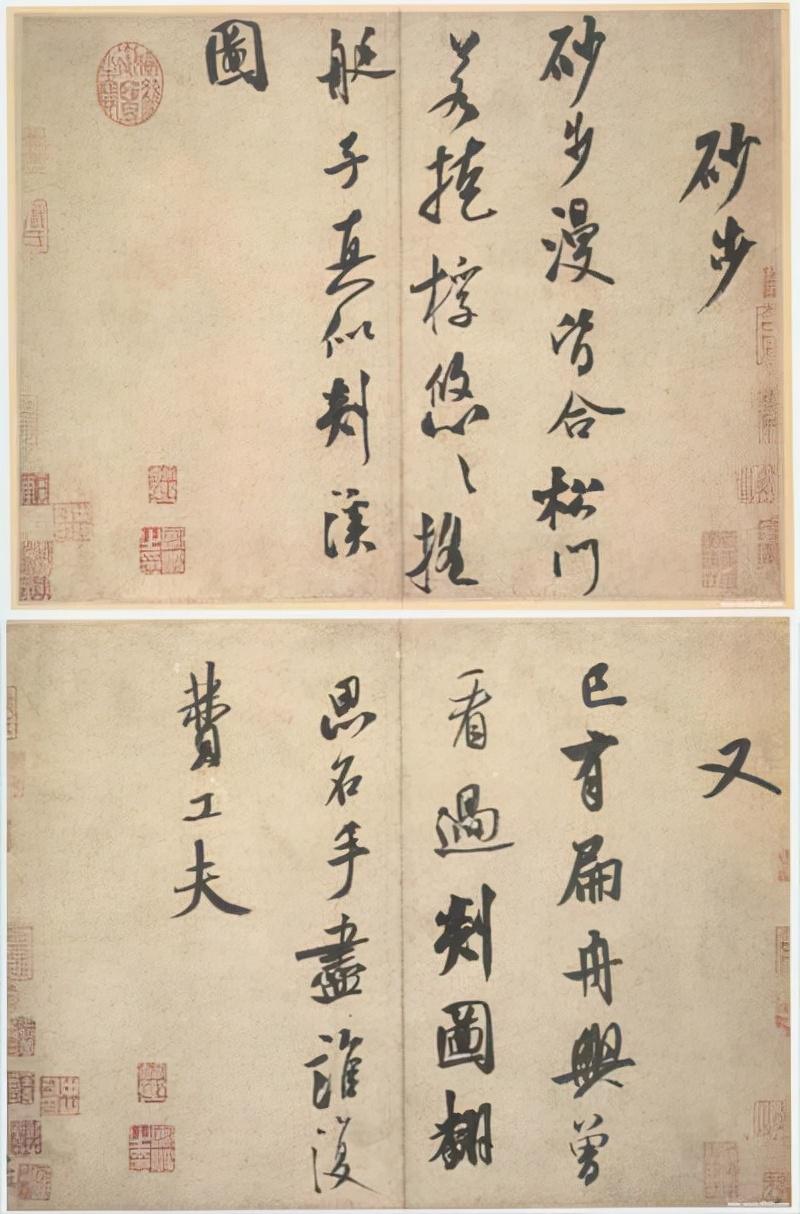 砂步
砂步漫皆合松門
若掩桴悠々搖
艇子真似剡溪
圖
又
已有扁舟興曾
看過剡圖翻
思名手盡誰復
費工夫